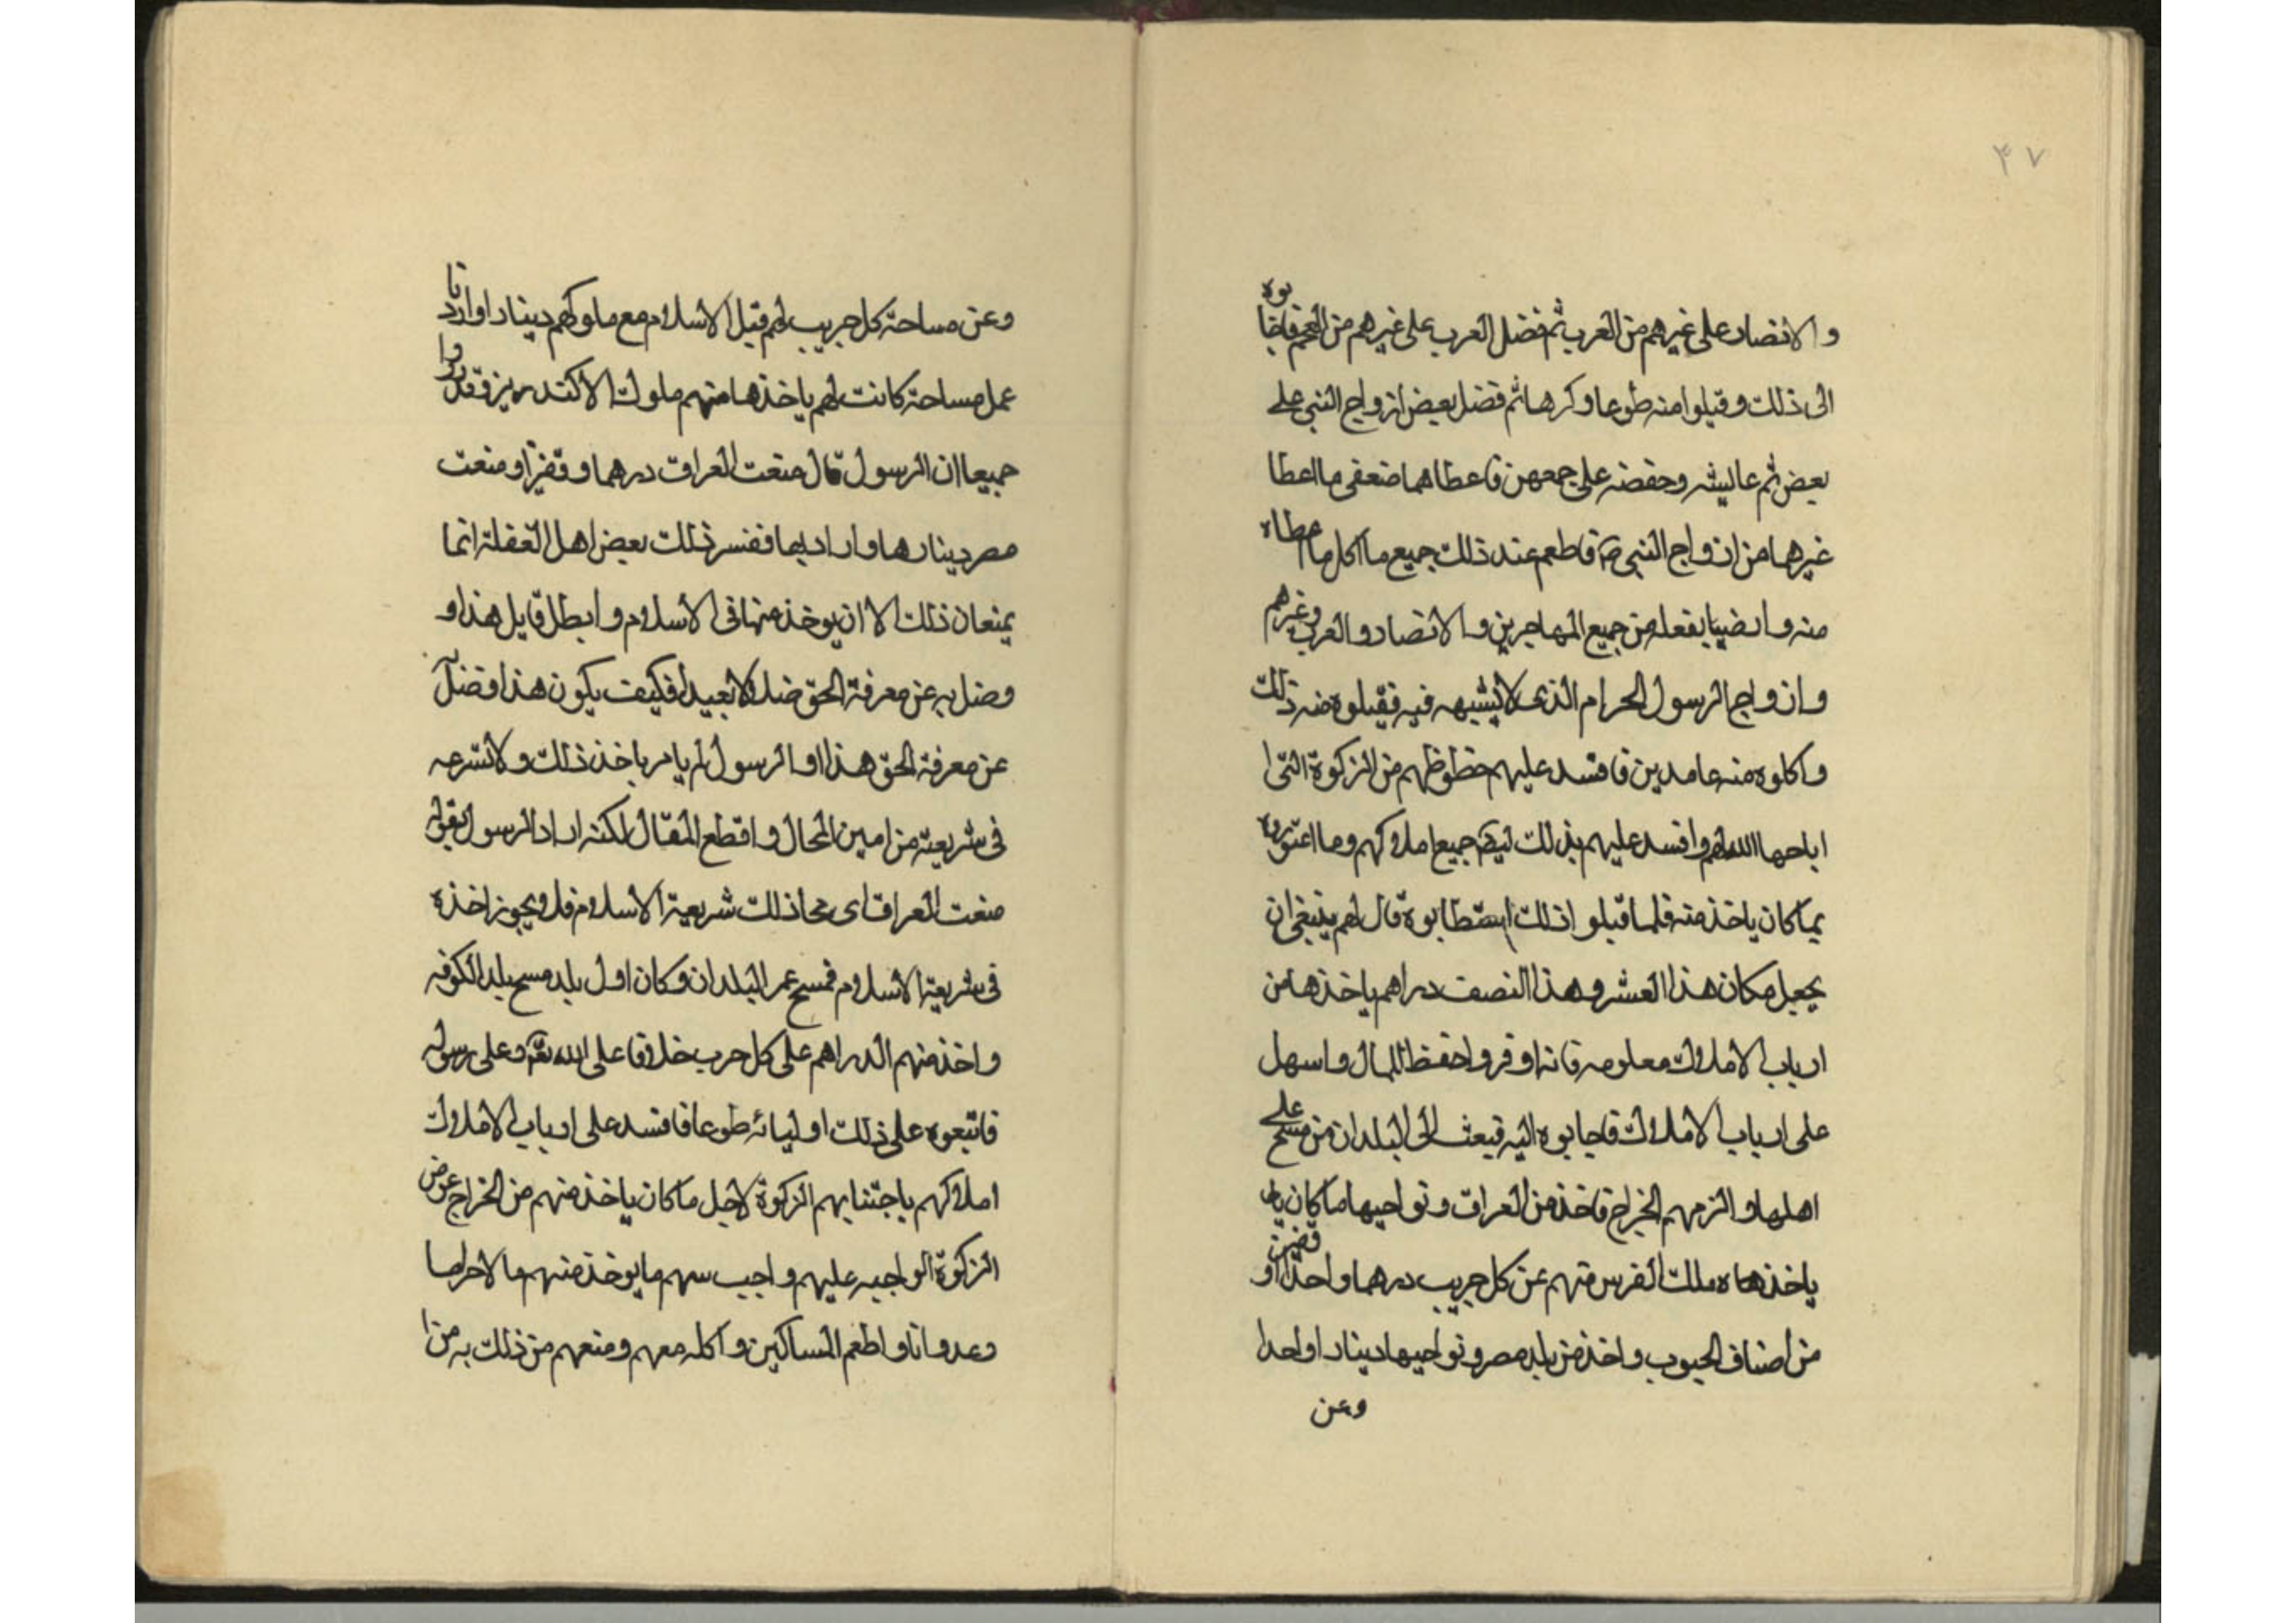 ۴۷
والانصار على غيرهم من العرب ثم فضل العرب على غيرهم من العجم فاجابوه
الى ذلك وقبلوا منه طوعا وكرها ثم فضل بعض ازواج النبي على
بعض ثم عايشه وحفصه على جمعهن فاعطاهما ضعفى ما اعطا
غيرهما من ازواج النبى صم فاطعم عند ذلك جميع ما اكل ما اعطاه
منه وارضينا بفعله من جميع المهاجرين والانصار والعرب وغيرهم
وازواج الرسول الحرام الذى لا يشبهه فيه فقبلوه منه ذلك
واكلوه منه عامدين فافسد عليهم حظوظهم من الزكوة التى ا
اباحها الله لهم وافسد عليهم بذلك ايضا جميع املاكهم وما اعتوروه
بما كان ياخذ منه فلما قبلوا ذلك استطابوه قال لهم ينبغى ان
يجعل مكان هذا العشر وهذا النصف دراهم ياخذها من
ارباب الاملاك معلومه فانه اوفر واحفظ للمال واسهل
على ارباب الاملاك فاجابوه اليه فبعث الى البلدان من مسح على
اهلها والزمهم الخراج فاخذ من العراق ونواحيها ما كان يا
ياخذها ه ملك الفرس منهم عن كل جريب درهما واحدا و قفيز
من اصناف الحبوب واخذ من بلد مصر ونواحيها دينارا واحدا
وعن
وعن مساحة كل جريب لهم قبل الاسلام مع ملوكهم دينارا واردبا
عمل مساحة كانت لهم ياخذها منهم ملوك الاكندريز فقد رووا
جميعا ان الرسول قال منعت العراق درهما وقفيزا ومنعت
مصر دينارها واردبها ففسر ذلك بعض اهل الغفلة انما
يمنعان ذلك الا ان يوخذ منها فى الاسلام وابطل قايل هذا و
وضل به عن معرفة الحق ضلالا بعيدا فكيف يكون هذا وقضل
عن معرفة الحق هذا او الرسول لم يامر باخذ ذلك ولا شرعه
فى شريعته من امين المحال واقطع المقال لكنه اراد الرسول بقوله
منعت العراق اى محا ذلك شريعة الاسلام فلا يجوز اخذه
فى شريعة الاسلام فمسح عمر البلدان وكان اول بلد مسح بلد الكوفه
واخذ منهم الدراهم على كل جرب خلافا على الله تع وعلى رسوله
فاتبعوه على ذلك اوليائه طوعا فافسد على ارباب الاملاك
املاكهم باجتنابهم الزكوة لاجل ما كان ياخذ منهم من الخراج عوض
الزكوة الواجبه عليهم واجب سهم ما يوخذ منهم مالا حراما
وعدوانا واطعم المساكين واكله معهم ومنعهم من ذلك به من ا